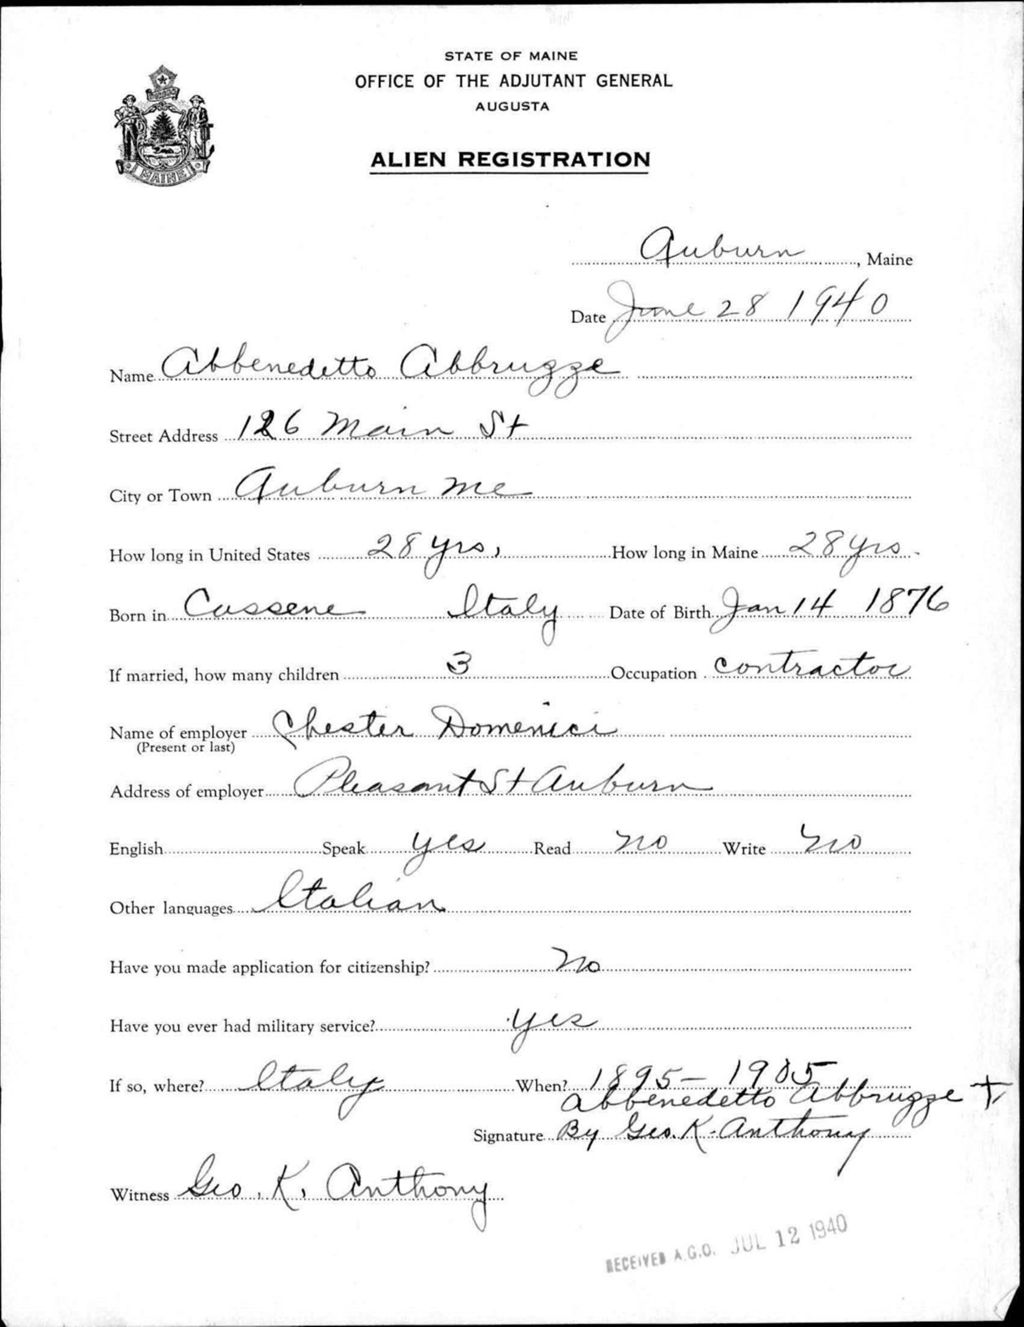 STATE OF MAINE
OFFICE OF THE ADJUTANT GENERAL
AUGUSTA
MAINE
ALIEN REGISTRATION
Auburn, Maine
Date June 28 1940
Name Abbenedetto Abbrugze
Street Address 126 Main St
City or Town Auburn Me
How long in United States 28 yrs, How long in Maine 28 yrs.
Born in Cassene Italy Date of Birth Jan 14 1876
If married, how many children 3 Occupation contractor
Name of employer Chester Domenici
(Present or last)
Address of employer Pleasant St Auburn
English Speak yes Read no Write no
Other languages Italian
Have you made application for citizenship? no
Have you ever had military service? yes
If so, where? Italy When? 1895 - 1905
Abbenedetto Abbrugze +
Signature By Geo. K. Anthony
Witness Geo. K. Anthony
RECEIVED A.G.O. JUL 12 1940